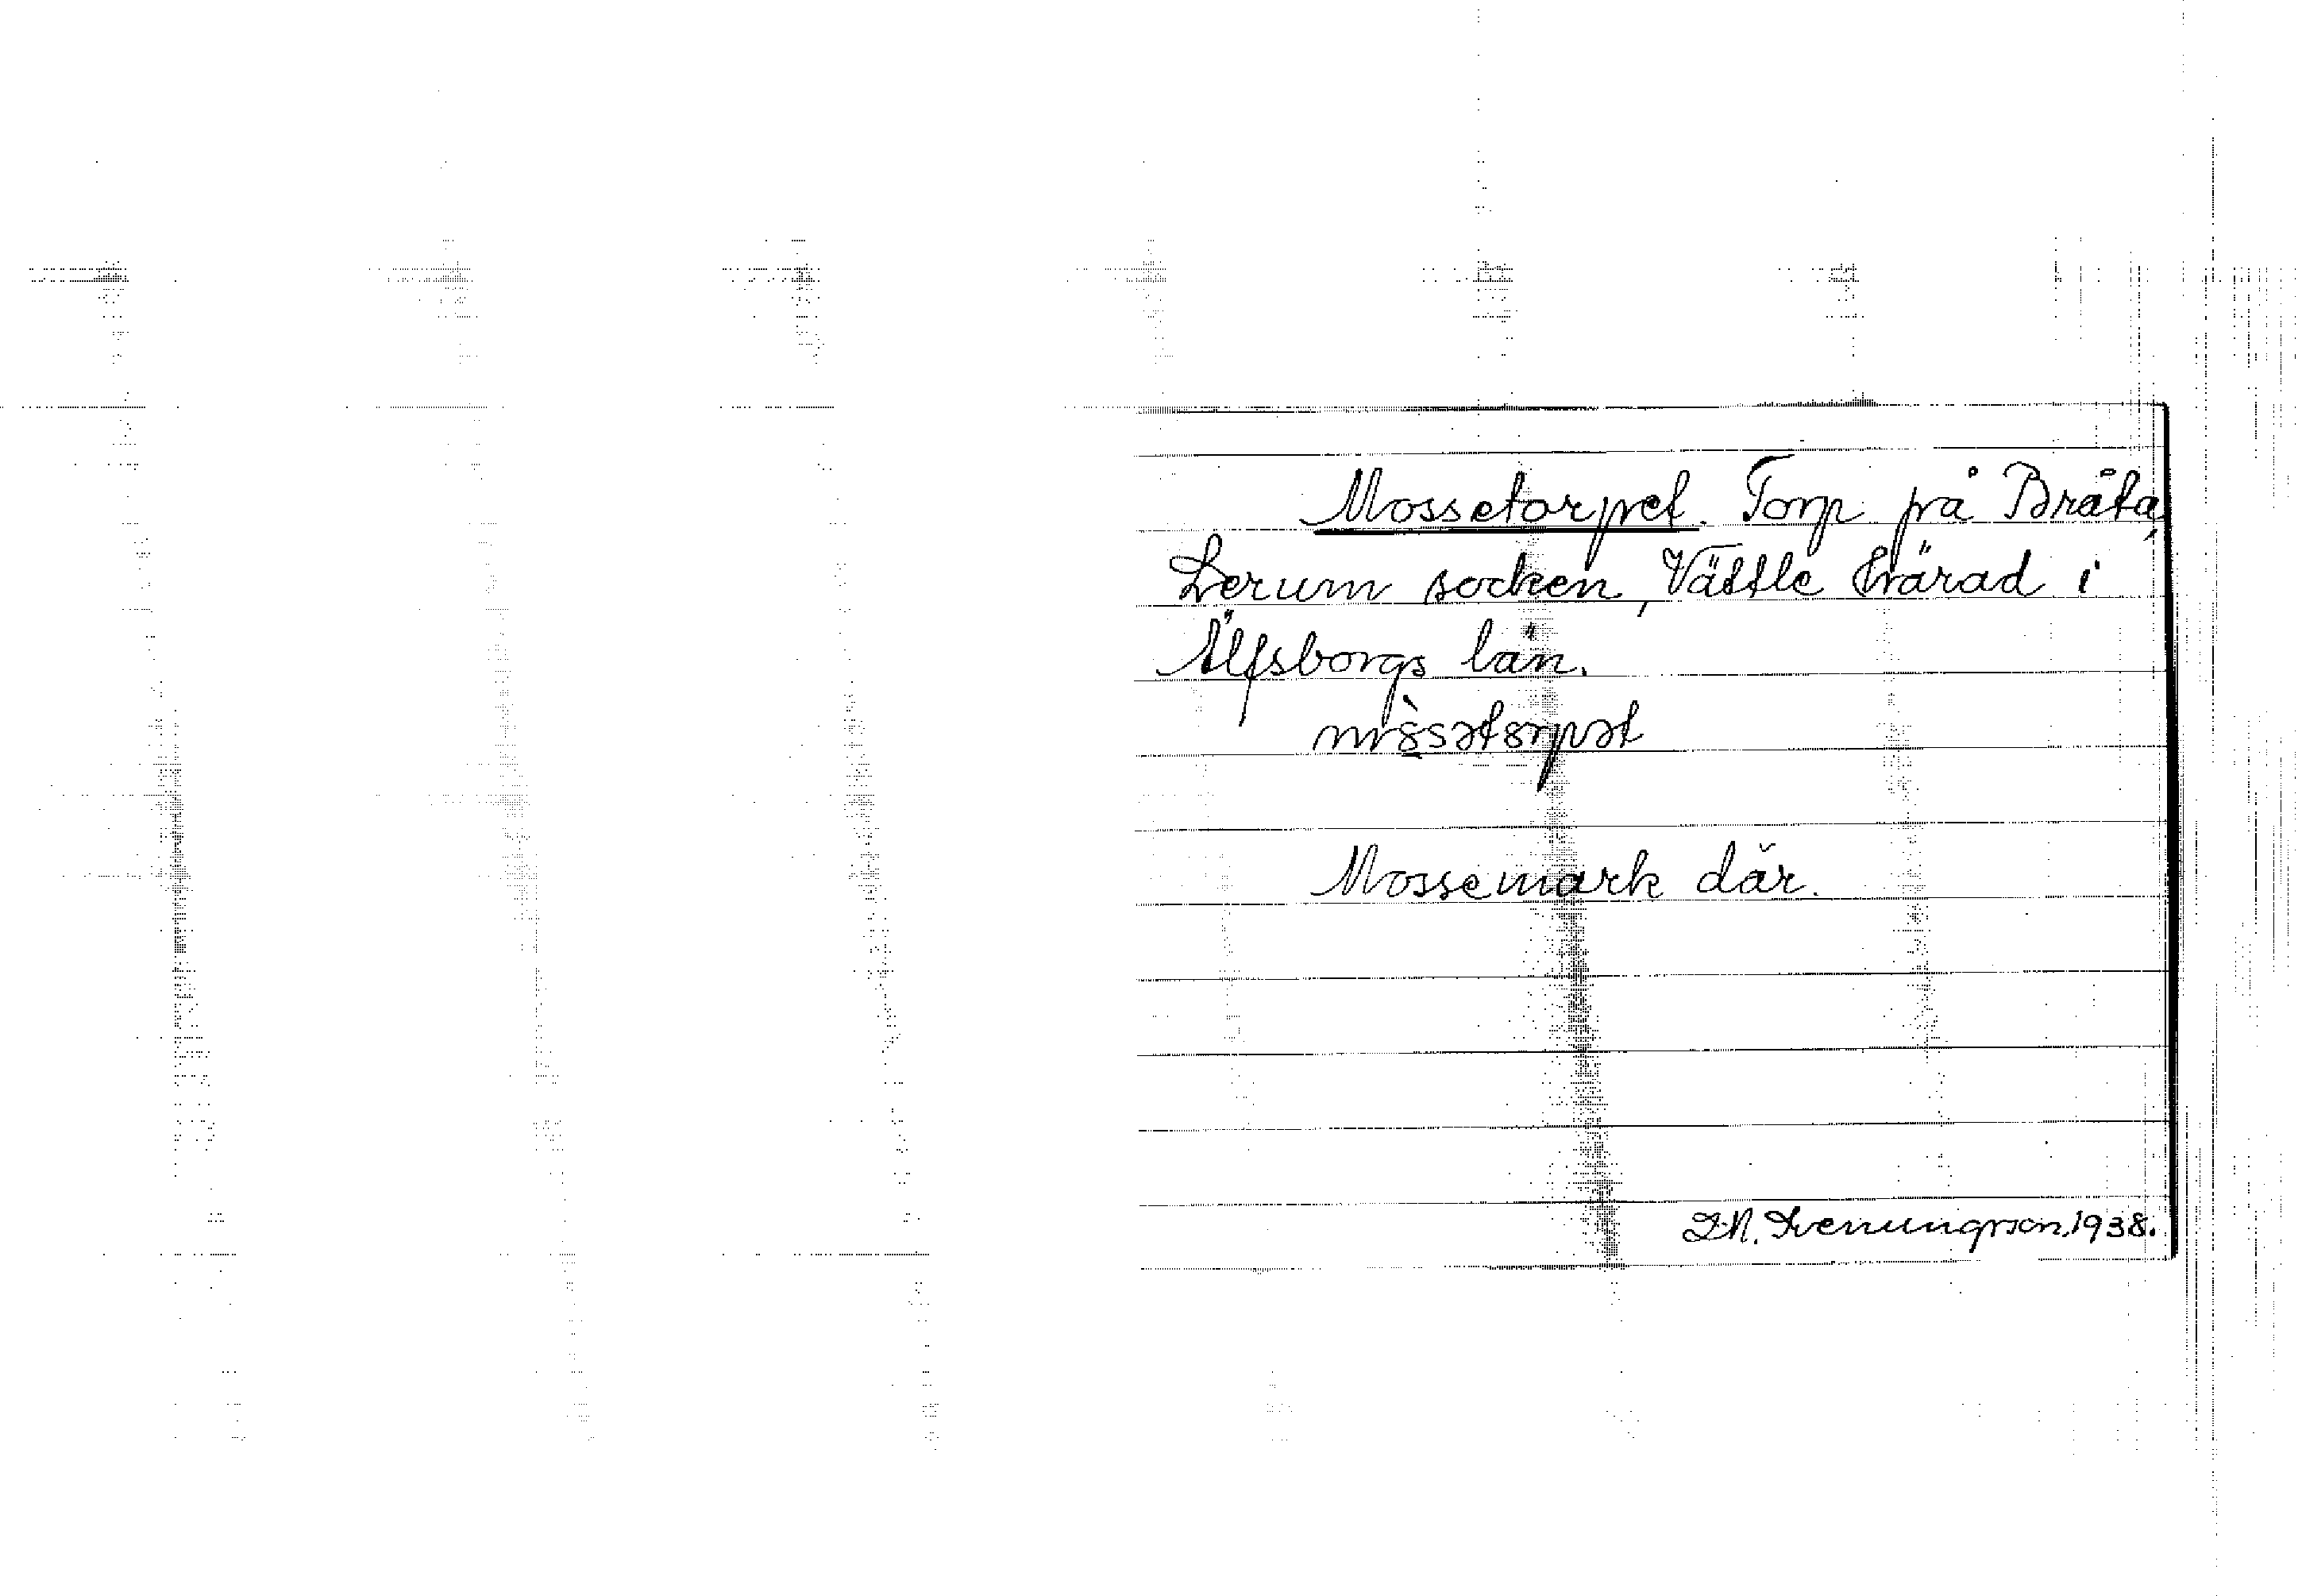 Mossetorpet. Torp på Bråta,
Lerum socken, Vättle härad i
Älfsborgs län.
Mossemark där.
1938.